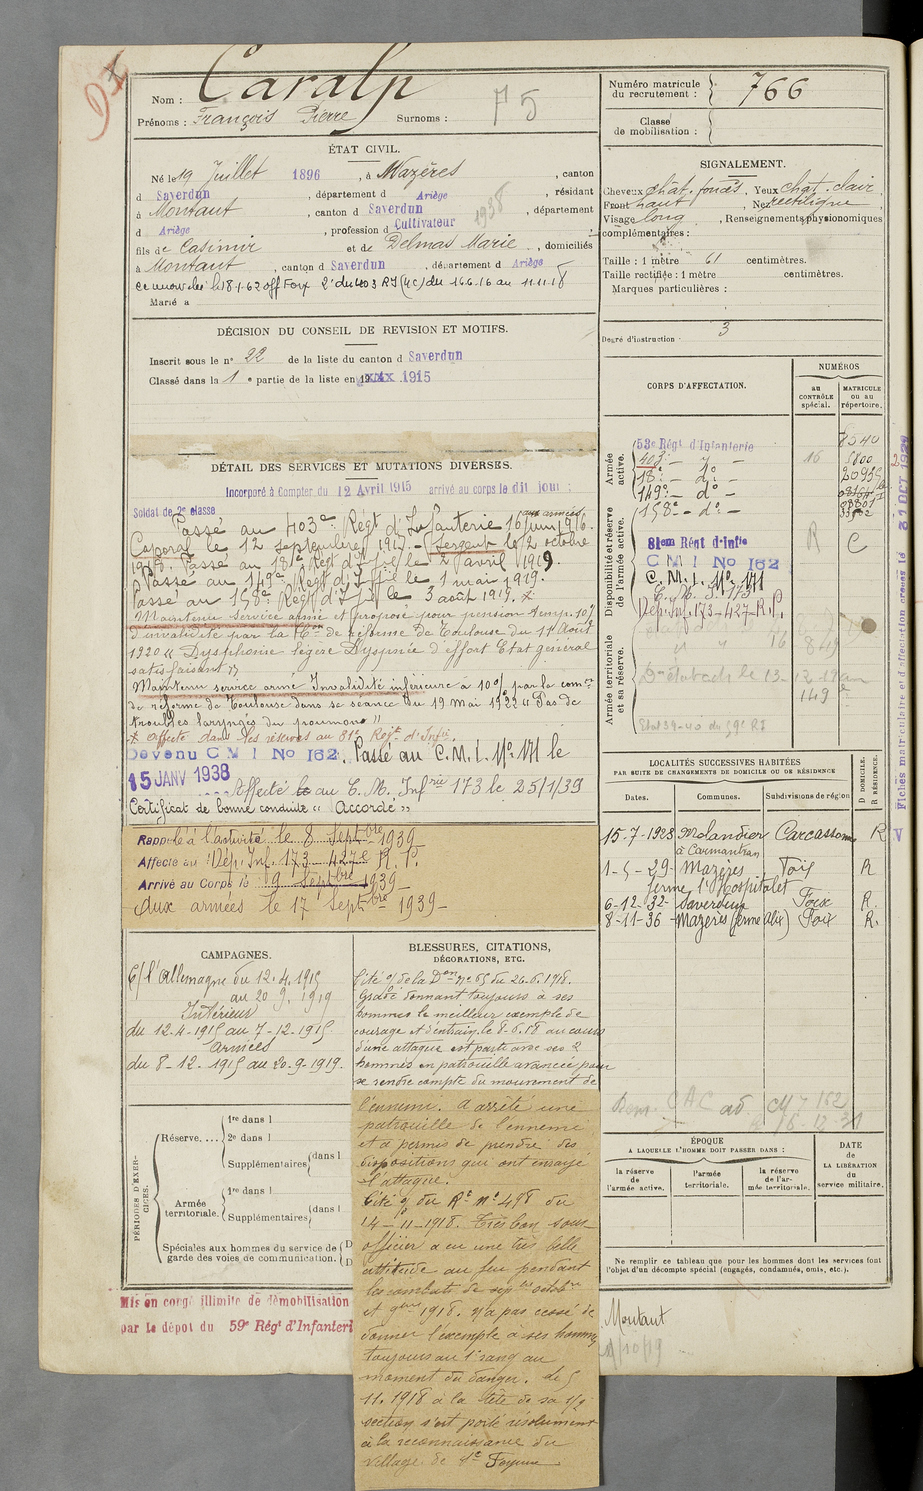 Nom : Caralp
Prénoms : François Pierre Surnoms : 75
Numéro matricule du recrutement : 766
Classe de mobilisation :
ÉTAT CIVIL.
Né le 19 Juillet 1896, à Mazères, canton
d Saverdun, département d Ariège, résidant
à Montaut, canton d Saverdun, département
d Ariège, profession d Cultivateur 1938
fils de Casimir et de Delmas Marie, domiciliés
à Montaut, canton d Saverdun, département d Ariège
le 18-1-62 off Foix 2e du 403 RI (4c) du 16.6.16 au 11.11.18
Marié à
SIGNALEMENT.
Cheveux chat. foncés, Yeux chat. clair
Front haut, Nez rectiligne,
Visage long, Renseignements physionomiques
complémentaires :
Taille : 1 mètre 61 centimètres.
Taille rectifiée : 1 mètre centimètres.
Marques particulières :
Degré d'instruction 3
DÉCISION DU CONSEIL DE REVISION ET MOTIFS.
Inscrit sous le n° 22 de la liste du canton d Saverdun
Classé dans la 1e partie de la liste en 1915
DÉTAIL DES SERVICES ET MUTATIONS DIVERSES.
Incorporé à Compter du 12 Avril 1915 arrivé au corps le dit jour :
Soldat de 2e classe
aux armées
Passé au 403e Régt d'Infanterie 16 juin 1916.
Caporal le 12 septembre 1917. - Sergent le 2 octobre
1918. Passé au 18e Régt d'Inf ie le 2 avril 1919.
Passé au 149e Régt d'Inf ie le 1 mai 1919.
Passé au 158e Régt d'Inf ie le 3 août 1919.
Maintenu service armé et proposé pour pension temp. 10%
d'invalidité par la Con de réforme de Toulouse du 11 Août
1920 " Dysphonie légère Dyspnée d'effort Etat général
satisfaisant "
Maintenu service armé Invalidité inférieure à 10% par la comon
de réforme de Toulouse dans sa séance du 19 mai 1922 " Pas de
troubles laryngés du poumon "
affecté dans les réserves au 81e Régt d'Infie.
Devenu C M I No 162. Passé au C.M.I. No 171 le
15 JANV 1938
Affecté au C. M. Infrie 173 le 25/1/39
Certificat de bonne conduite " Accordé "
Rappelé à l'activité le 8 Septbre 1939
Affecté au Dép. Inf. 173 - 427e R. P.
Arrivé au Corps le 9 Septbre 1939
Aux armées le 17 Septbre 1939
CORPS D'AFFECTATION.
NUMÉROS
au CONTRÔLE spécial.
MATRICULE ou au répertoire.
Armée active.
53e Régt d'Infanterie 8540
403e - do - 16 5800
18e - do - 20935
149e - do -
158e - do -
Disponibilité et réserve de l'armée active.
81em Régt d'Infie R C
C M I No 162
C. M. I. No 171
C. M. I. 173
Dép. Inf. 173-427-R.P.
Armée territoriale et sa réserve.
Fiches matriculaire et d'affectation créées le 31 OCT 1929
LOCALITÉS SUCCESSIVES HABITÉES
PAR SUITE DE CHANGEMENTS DE DOMICILE OU DE RÉSIDENCE
Dates. Communes. Subdivisions de région D DOMICILE. R RÉSIDENCE.
15-7-1928 Molandier Carcassonne R
à Carmantran
1-5-29 Mazères Foix R
ferme l'Hospitalet
6-12-32 Saverdun Foix R.
8-11-36 Mazères (ferme Alix) Foix R.
CAMPAGNES.
C/ l'Allemagne du 12.4.1915
au 20.9.1919
Intérieur
du 12-4-1915 au 7-12-1915
Armées
du 8-12-1915 au 20-9-1919.
BLESSURES, CITATIONS,
DÉCORATIONS, ETC.
Cité o/ de la Don no 65 du 26.6.1918.
Gradé donnant toujours à ses
hommes le meilleur exemple de
courage et d'entrain. le 8-6.18 au cours
d'une attaque est parti avec ses 2
hommes en patrouille avancée pour
se rendre compte du mouvement de
l'ennemi. A arrêté une
patrouille de l'ennemi
et a permis de prendre des
dispositions qui ont enrayé
l'attaque.
Cité o/ du Rt no 498 du
14-11-1918. Très bon sous-
officier a eu une très belle
attitude au feu pendant
les combats de septbre octobre
et 9bre 1918. N'a pas cessé de
donner l'exemple à ses hommes
toujours au 1er rang au
moment du danger. le 5
11.1918 à la tête de sa 1/2
section s'est porté résolument
à la reconnaissance du
village de Ste
PÉRIODES D'EXERCICES.
Réserve. 1re dans l
2e dans l
Supplémentaires dans l
Armée territoriale. 1re dans l
Supplémentaires dans l
Spéciales aux hommes du service de garde des voies de communication.
ÉPOQUE
A LAQUELLE L'HOMME DOIT PASSER DANS :
la réserve de l'armée active.
l'armée territoriale.
la réserve de l'armée territoriale.
DATE de LA LIBÉRATION du service militaire.
Ne remplir ce tableau que pour les hommes dont les services font
l'objet d'un décompte spécial (engagés, condamnés, omis, etc.).
Mis en congé illimité de démobilisation
par le dépôt du 59e Régt d'Infanterie
Montaut